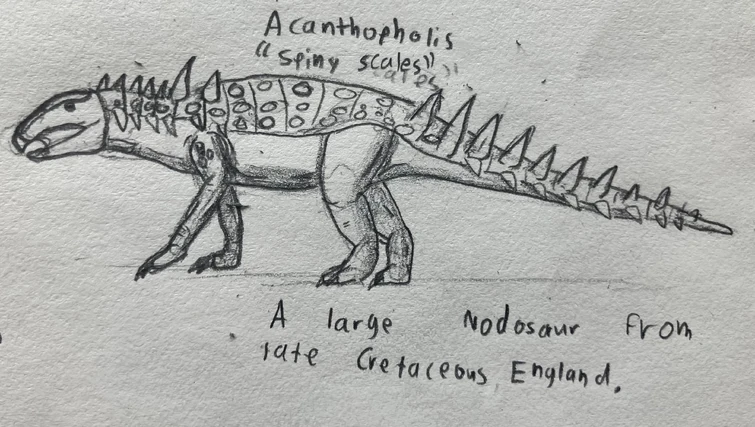 Acanthopholis
"Spiny scales"
A large Nodosaur from
late Cretaceous England.